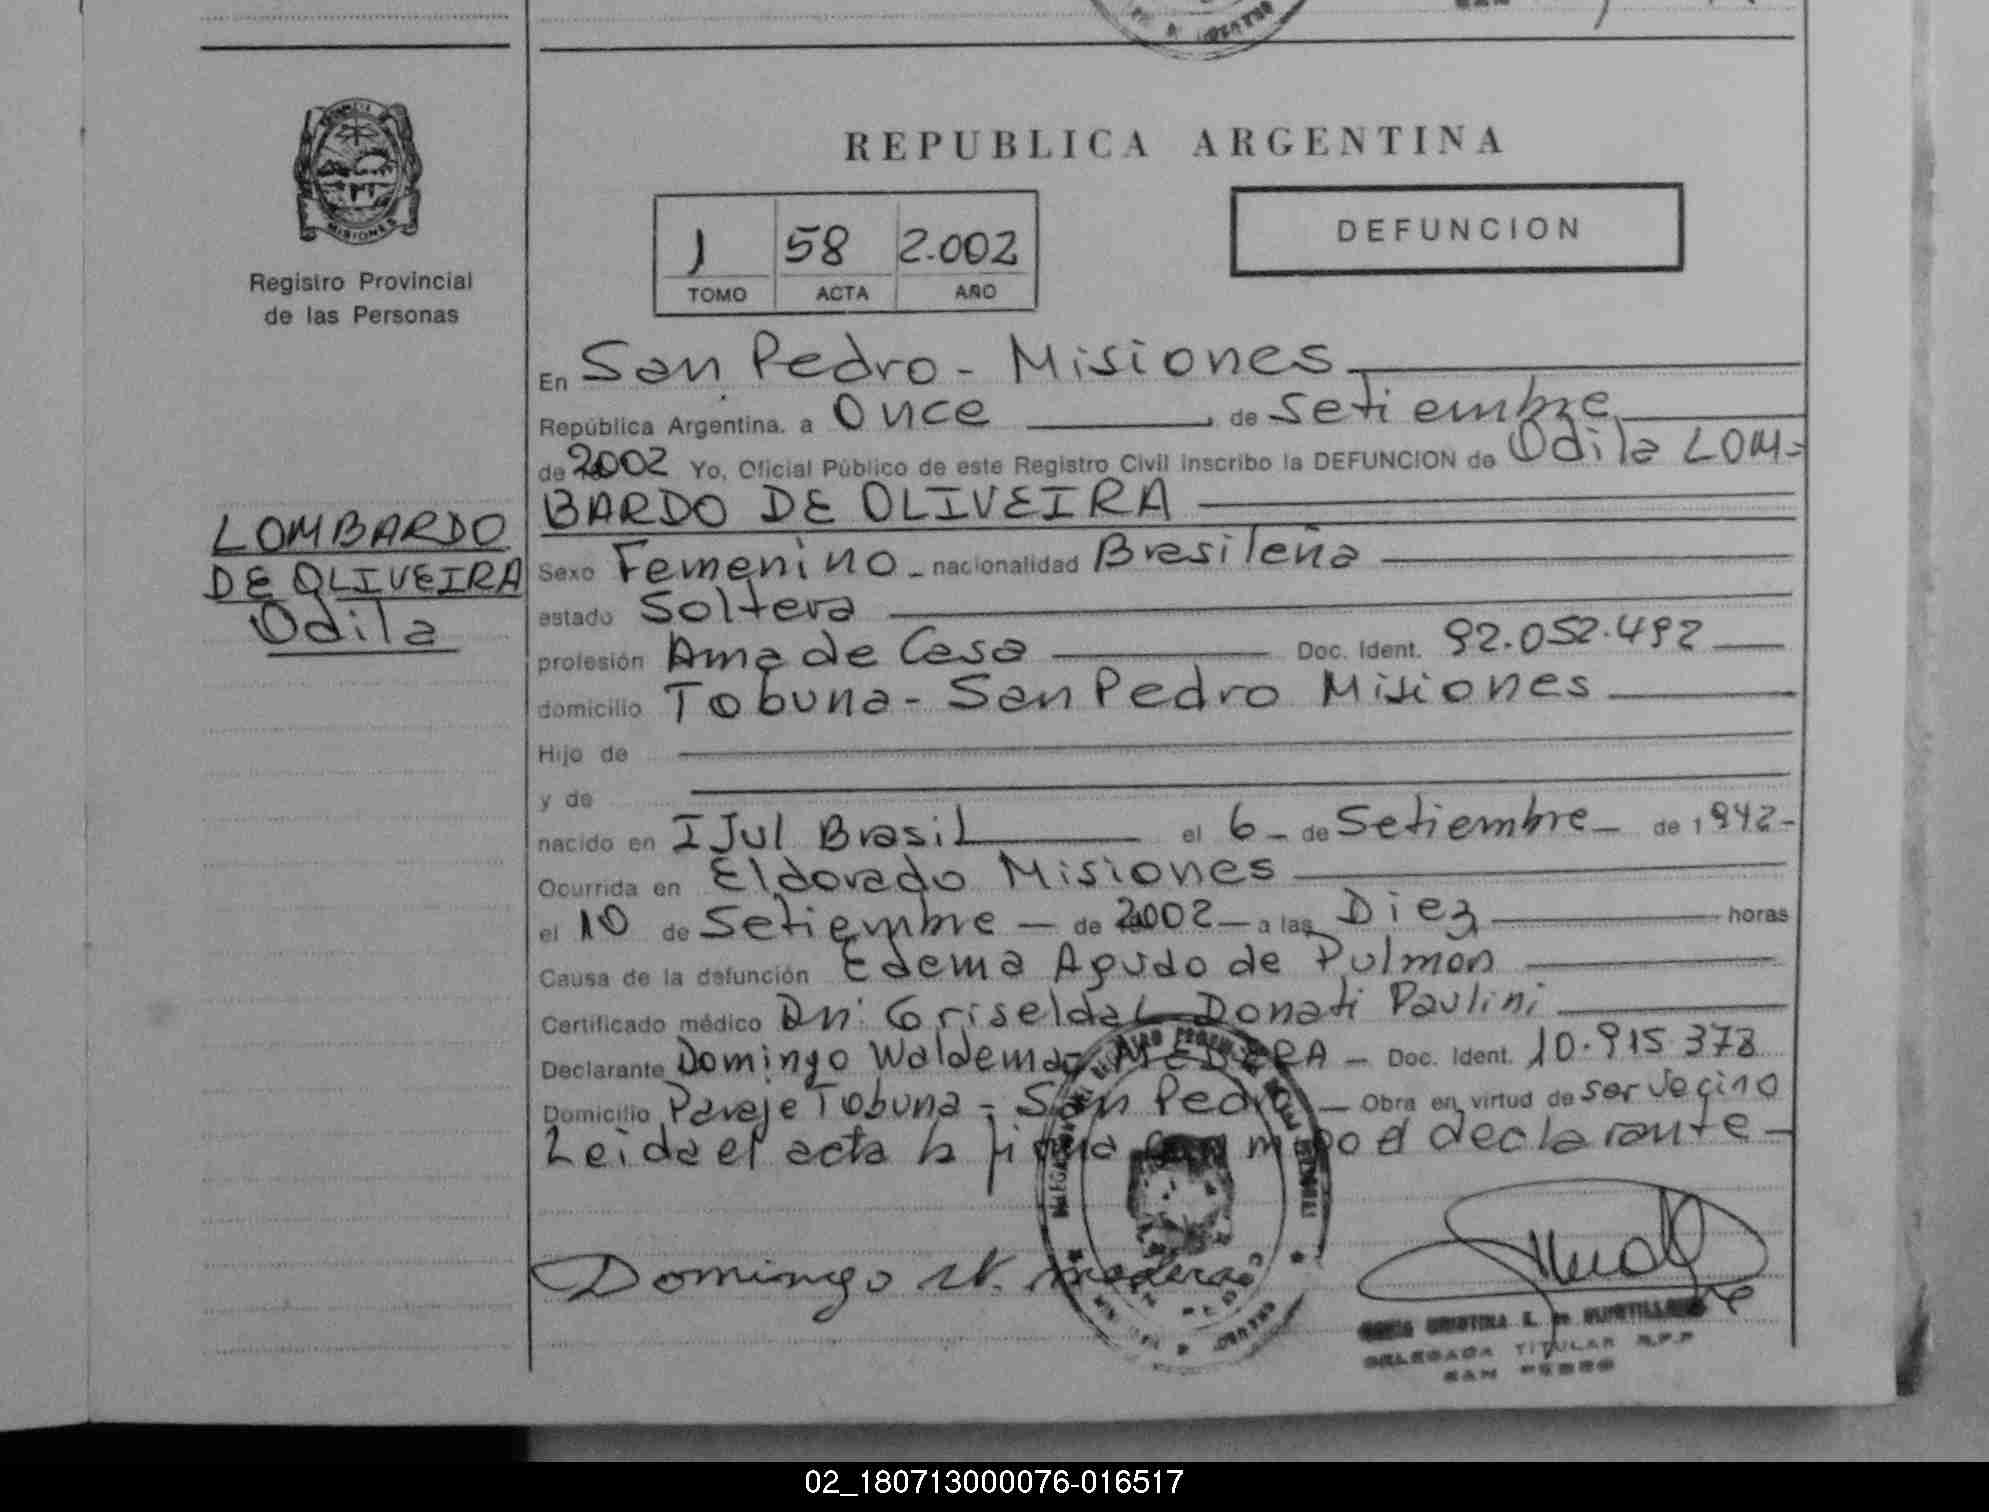 REPUBLICA ARGENTINA
MISIONES
Registro Provincial
de las Personas
1 58 2.002
TOMO ACTA AÑO
DEFUNCION
LOMBARDO
DE OLIVEIRA
Odila
En San Pedro - Misiones
República Argentina, a Once de Setiembre
de 2002 Yo, Oficial Público de este Registro Civil inscribo la DEFUNCION de Odila LOM-
BARDO DE OLIVEIRA
Sexo Femenino - nacionalidad Brasileña
estado Soltera
profesión Ama de Casa Doc. Ident. 92.052.492
domicilio Tobuna - San Pedro Misiones
Hijo de
y de
nacido en IJul Brasil el 6 - de Setiembre - de 1942 -
Ocurrida en Eldorado Misiones
el 10 de Setiembre - de 2002 - a las Diez horas
Causa de la defunción Edema Agudo de Pulmon
Certificado médico Griselda Donati Paulini
Declarante Domingo Waldemar MEDERA - Doc. Ident. 10.915.378
Domicilio Paraje Tobuna - San Pedro - Obra en virtud de ser vecino
Leida el acta la firma el declarante -
Domingo W. Madera
DELEGADA TITULAR R.P.P
SAN PEDRO
02_180713000076-016517